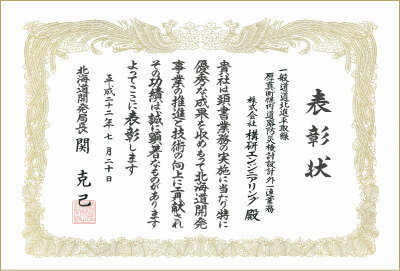 表彰状
一般道道北進平取線
厚真町幌内道路防災検討設計外一連業務
株式会社 構研エンジニアリング 殿
貴社は頭書業務の実施に当たり特に
優秀な成果を収めもって北海道開発
事業の推進と技術の向上に貢献され
その功績は誠に顕著なものがあります
よってここに表彰します
平成二十二年 七 月 二十 日
北海道開発局長 関 克己